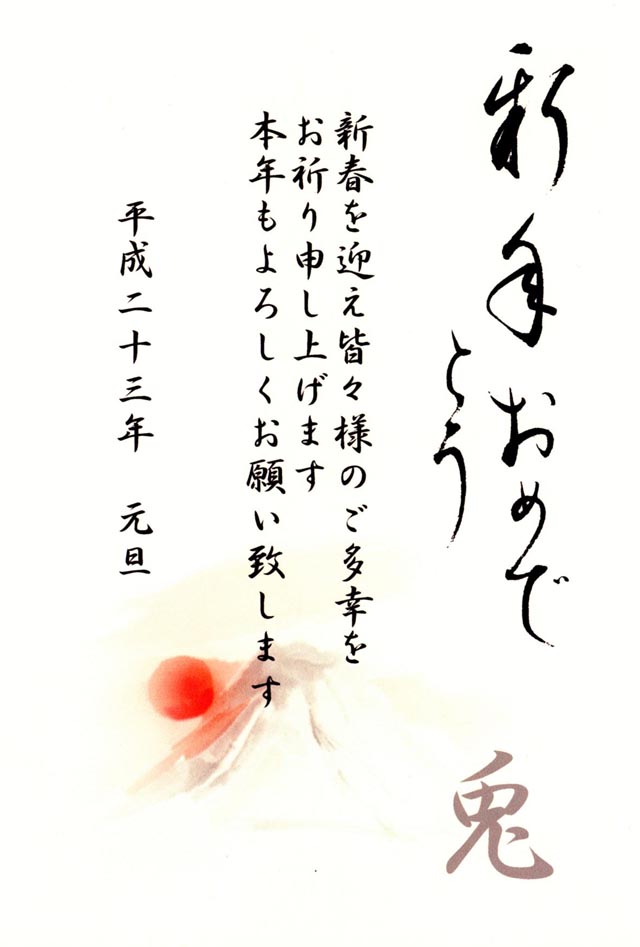 新年おめで
とう
新春を迎え皆々様のご多幸を
お祈り申し上げます
本年もよろしくお願い致します
平成二十三年 元旦
兎